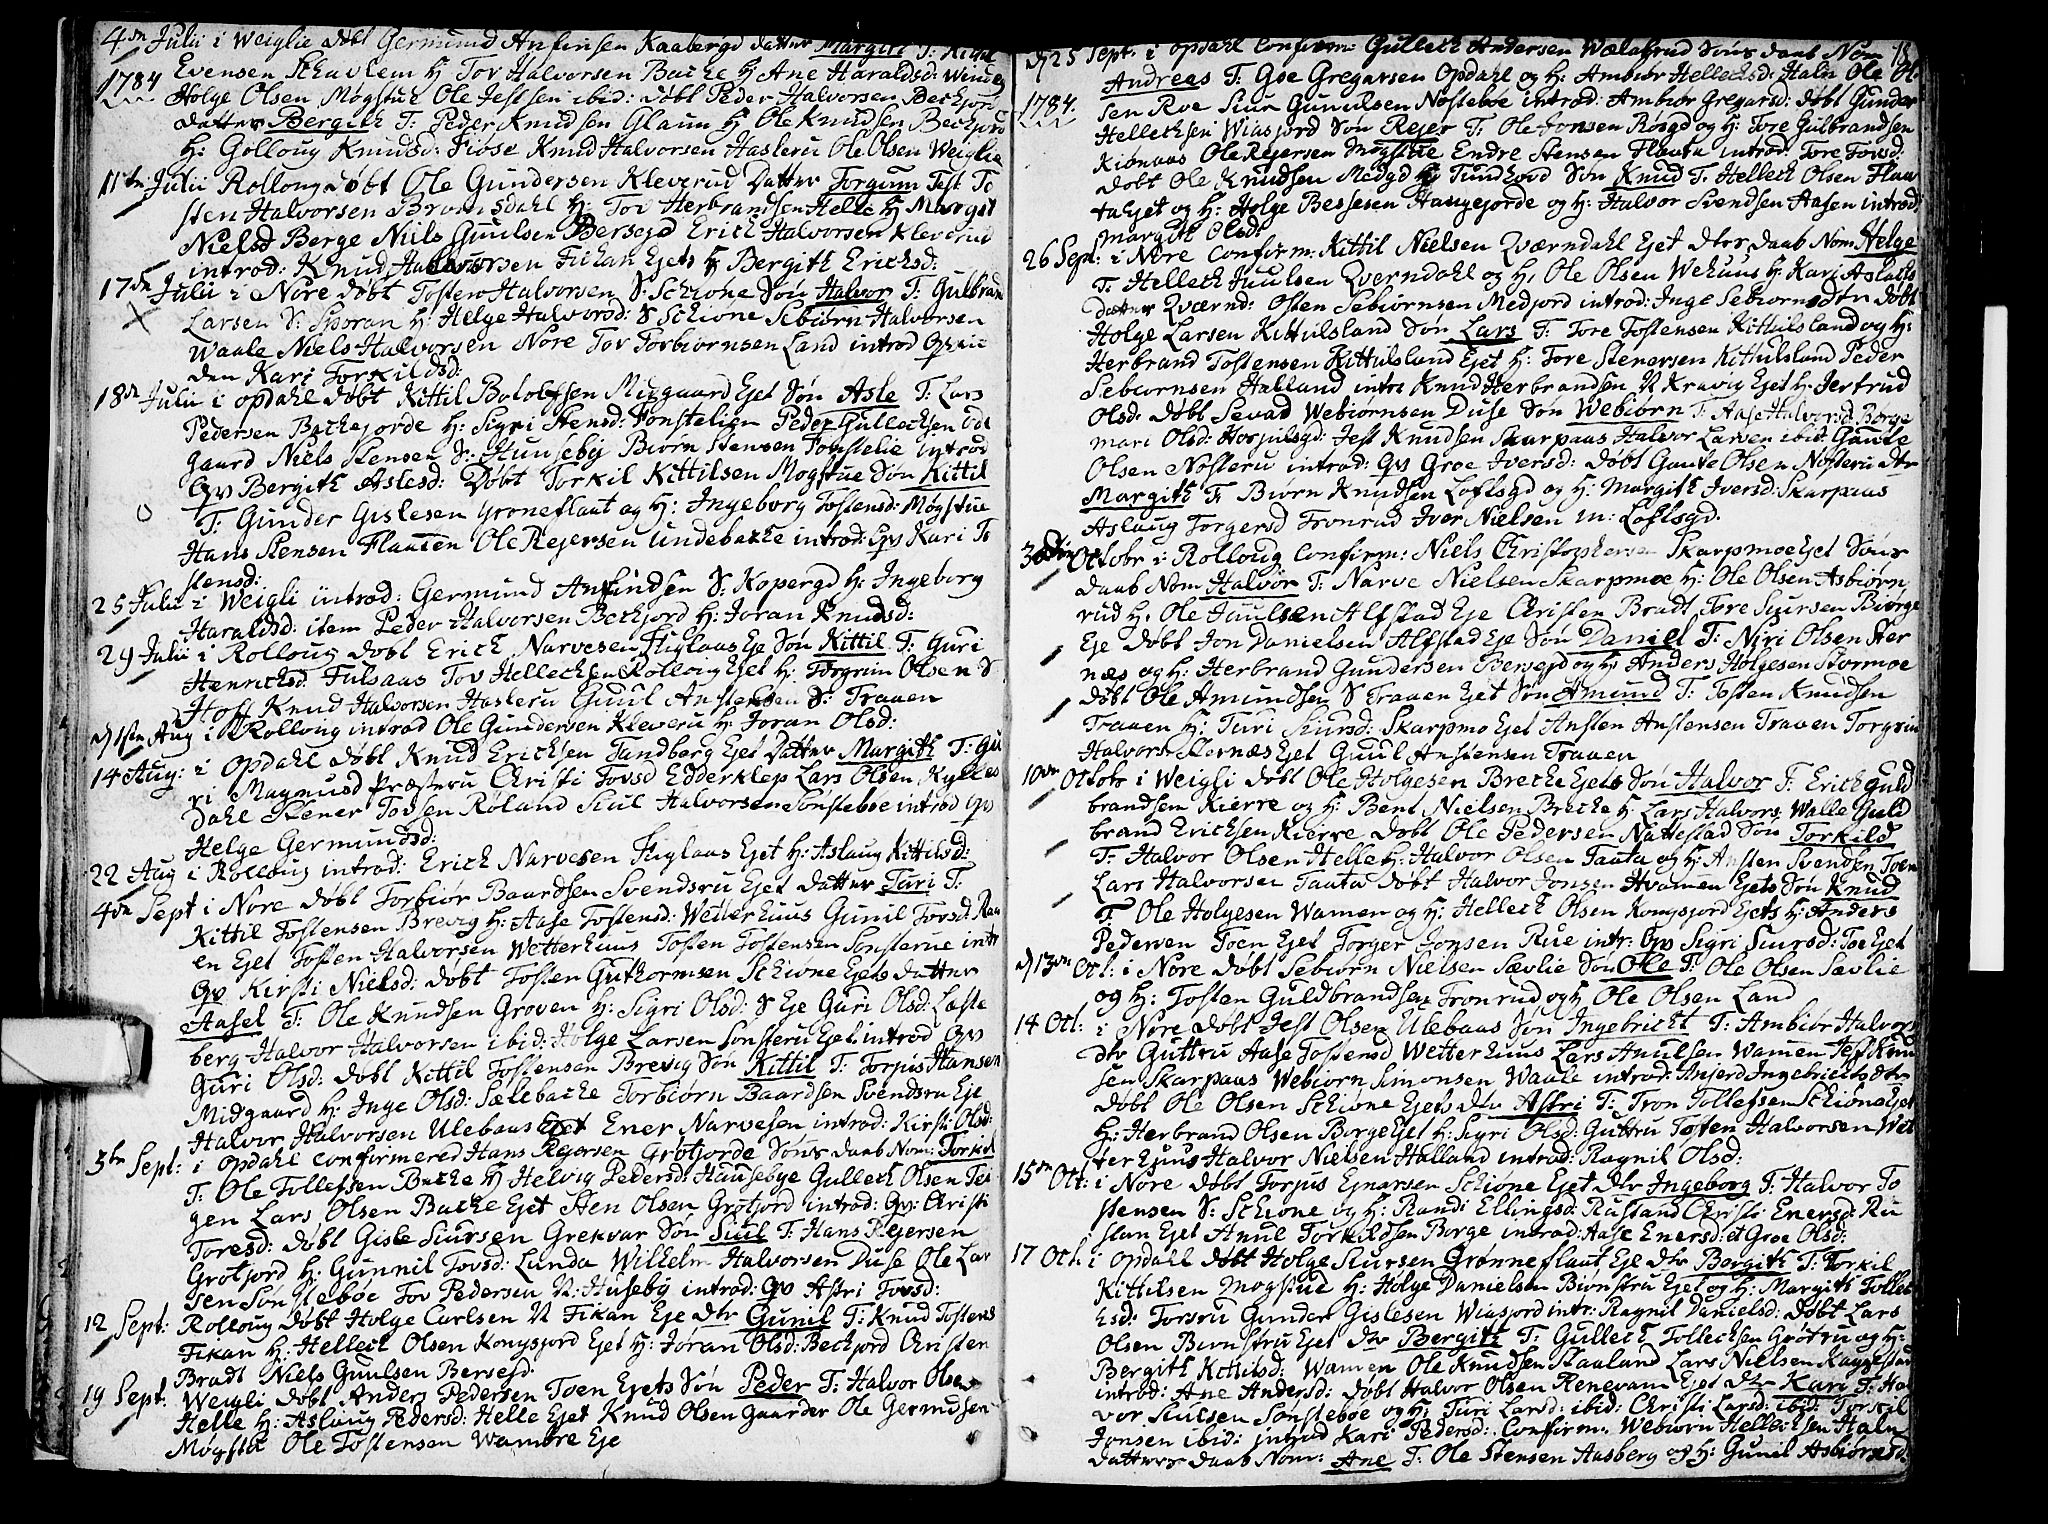 4de Julii i Weiglie döbt Germund Anfinsen Kaabergd datter Margit T: Kittil
1784
Evensen Schavlem H Tov Halvorsen Bache H Ane Haraldsd: Windeg
Holge Olsen Møgstuk Ole Jestsen ibid: døbt Peder Halvorsen Bechjord
datter Bergith T: Peder Knudsen Glaum H Ole Knudsen Bechjord
H: Golloug Knudsd: Fiose Knud Halvorsen Hasleru Ole Olsen Weiglie
11te Julii Rolloug døbt Ole Gundersen Kleverud Datter Torgun Test To
sten Halvorsen Bromsdahl H: Tov Herbrandsen Helle H Margit
Nielsd Berge Niels Guulsen Bersejd Erich Halvorsen Kleverud
introd: Knud Halvorsen Fickan Ejets H Bergith Erichsd:
17de Julii i Nore døbt Tosten Halvorsen S: Schiøne Søn Halvor T: Gulbrand
Larsen S: Sporan H: Helge Halvorsd: S Schiøne Sebiørn Halvorsen
Waale Niels Halvorsen Nore Tov Torbiørnsen Land introd Qvin
den Kari Torkildsd:
18de Julii i opdahl døbt Kittil Bolofsen Mizgaard Ejet Søn Asle T: Lars
Pedersen Bechejorde H: Sigri Stensd: Fonstelien Peder Gullechsen Ode
gaard Niels Stensen Sr. Huuseby Biørn Stensen Fonstelie introd
Qv Bergith Aslesd: Døbt Torkil Kittilsen Mogstue Søn Kittil
T: Gunder Gislesen Grøneflaut og H: Ingeborg Tostensd: Møgstue
Hans Stensen Flaaten Ole Rejersen Undebacke introd: Qv Kari To
stensd:
25 Julii i Weigli introd: Germund Anfindsen S: Kopergd H: Ingeborg
Haraldsd: item Peder Halvorsen Bechjord H: Joran Knudsd:
29 Julii i Rolloug døbt Erich Narvesen Figlaas Eje Søn Kittil T: Guri
Henrichsd Fulsaas Tov Hellechsen Rolloug Ejet H: Torgrim Olsen S
Hoff Knud Halvorsen Hasleru Guul Anstensen S: Traaen
d 1ste Aug i Rolloug introd Ole Gundersen Kleveru H: Joran Olsd:
14 Aug: i Opdahl døbt Knud Erichsen Tandberg Ejet Datter Margith T: Gu
ri Magnusd Præsteru Christi Tovsd Edderklep Lars Olsen Kykkes
dahl Stener Tovsen Roland Siul Halvorsen Sønstebøe introd Qv
Helge Germundsd:
22 Aug i Rolloug introd: Erich Narvesen Figlaas Ejet H: Aslaug Kittilsd:
4de Sept i Nore døbt Torbiør Baardsen Svendsru Ejet datter Turi T:
Kittil Tostensen Brevig H: Aase Tostensd: Wetterhuus Gunil Torsd Raa
en Ejet Tosten Halvorsen Wetterhuus Tosten Tostensen Sønsterue intr
Qv Kirsti Nielsd: døbt Tosten Guthormsen Schiøne Ejets datter
Aasel T: Ole Knudsen Groven H: Sigri Olsd: S Eje Guri Olsd: Laste
berg Halvor Halvorsen ibid: Holge Larsen Sønsteru Ejet introd Qv
Guri Olsd: døbt Kittil Tostensen Brevig Søn Kittil T: Torpis Hansen
Midgaard H: Inge Olsd: Sælebacke Torbiørn Baardsen Svendsru Eje
Halvor Halvorsen Ulebaas Ejet Ener Narvesen introd: Kirsti Olsd:
5te Sept: i Opdahl confirmered Hans Rejersen Grøtjorde Søns daab Nom: Torkil
T: Ole Tollefsen Bache H Helvig Pedersd: Hausebye Gullech Olsen Tei
gen Lars Olsen Bache Ejet Sten Olsen Grøtjord introd: Qv: Christi
Toresd: døbt Gisle Siursen Grekvar Søn Siul T: Hans Rejersen
Grøtjord H: Gunnil Tovsd: Lunda Wilhelm Halvorsen Duse Ole Lar
sen Sønstebøe Tov Pedersen N: Huseby introd: Qv Astri Tovsd:
12 Sept: Rolloug døbt Holge Carlsen N Fikan Eje Dtr Gunil T: Knud Tostens
Fikan H: Hellech Olsen Kongsjord Ejet H: Jøran Olsd: Bechjord Christen
Bradt Niels Guulsen Bersejd
19 Sept: Weigli døbt Anders Pedersen Toen Ejets Søn Peder T: Halvor Olsen
Helle H: Aslaug Pedersd: Helle Ejet Knud Olsen Gaarder Ole Germdsen
Møgstu Ole Tostensen Wambre Eje
d 25 Sept: i opdahl Confirm: Gullech Andersen Wælafrud Søns daab Nom 18
Andreas T: Goe Gregarsen Opdahl og H: Ambiør Hellechsd: Halu Ole Ol
1784.
sen Roe Siur Gunulsen Nøstebøe introd: Ambiør Gregarsd: døbt Gunder
Hellechsen Wiasjord Søn Rejer T: Ole Jonsen Røsgd og H: Tore Gulbrandsen
Kiønaas Ole Rejersen Mogstue Endre Stensen Flaata introd: Tore Tovsd:
døbt Ole Knudsen Medgd H Tundhovd Søn Knud T: Hellech Olsen Flaa
ta Ejet og H: Holge Bessesen Haugejorde og H: Halvor Svendsen Aasen introd
Margith Olsd:
26 Sept: i Nore Confirm: Kittil Nielsen Qværndahl Ejet Dtr daab Nom: Helge
T: Hellech Juulsen Qverndahl og H, Ole Olsen Wehuus H: Kari Aslachs
datter Qværnd: Osten Sebiørnsen Medjord introd: Inge Sebiørnsdtr døbt
Holge Larsen Kittulsland Søn Lars T: Tore Tostensen Kittulsland og H:
Herbrand Tostensen Kittulsland Ejet H: Tore Stenersen Kittulsland Peder
Sebiørnsen Halland intro Knud Herbrandsen N Kravig Ejet H: Jertrud
Olsd: døbt Sevad Webiørnsen Duse Søn Webiørn T: Aase Halvorsd: Borge
mari Olsd: Horjulsgd: Jest Knudsen Skarpaas Halvor Larsen ibid: Gaute
Olsen Nøsteru introd: Qv Groe Iversd: døbt Gaute Olsen Nøsteru Dtr
Margith T: Biørn Knudsen Loftsgd og H: Margith Iversd: Skarpaas
Aslaug Torgersd Fronrud Iver Nielsen m: Loftsgd.
3die Octobr i Rolloug Confirm: Niels Christophersen Skarpmoe Ejet Søns
daab Nom Halvor T: Narve Nielsen Skarpmoe H: Ole Olsen Asbiørn
rud H, Ole Juulsen Alfstad Eje Christen Bradt Tore Siursen Biørge
Eje døbt Jon Danielsen Alfstad Eje Søn Daniel T: Niri Olsen Ster
næs og H: Herbrand Gundersen Bersejd og H Anders Holgesen Stormoe
døbt Ole Amundsen S Traaen Ejet Søn Amund T: Tosten Knudsen
Traaen H: Turi Siursd: Skarpmo Ejet Ansten Anstensen Traaen Torgrim
Halvors Sternæs Ejet Guul Anstensen Traaen
10de Octobr i Weigli døbt Ole Holgesen Breche Ejets Søn Halvor T: Erich Guld
brandsen Kierre og H: Bent Nielsen Breche H Lars Halvors: Walle Guld
brand Erichsen Kierre døbt Ole Pedersen Nattestad Søn Torkild
T: Halvor Olsen Helle H: Halvor Olsen Tauta og H: Ansten Svendsen Toen
Lars Halvorsen Tauta døbt Halvor Jonsen Hvamen Ejets Søn Knud
T: Ole Holgesen Wamen og H: Hellech Olsen Kongsjord Ejets H: Anders
Pedersen Toen Ejet Torger Jonsen Rue intr: Qv Sigri Siursd: Toe Ejet
d 13de Oct: i Nore døbt Sebiørn Nielsen Sævlie Søn Ole T: Ole Olsen Sævlie
og H: Tosten Guldbrandsen Fronrud og H Ole Olsen Land
14 Oct: i Nore døbt Jest Olsen Ulebaas Søn Ingebricht T: Ambiør Halvors
dtr Guttru Aase Tostensd Wetterhuus Lars Anulsen Wamen Jest Knu
sen Skarpaas Webiørn Simonsen Waale introd: Anserd Ingebrictsdtr
døbt Ole Olsen Schiøne Ejets Dtr Astri T: Tron Tollefsen Schiøne Ejet
H: Herbrand Olsen Borge Ejet H: Sigri Olsd: Guttru Tosten Halvorsen Wet
terhuus Halvor Nielsen Halland introd: Ragnil Olsd:
15de Oct: i Nore døbt Torjus Ejnarsen Schiøne Ejet Dtr Ingeborg T: Halvor To
stensen S: Schiøne og H: Randi Ellingsd: Rustand Christi Enersd: Ru
stan Ejet Anul Torkildsen Borge introd: Aase Enersd: et Groe Olsd:
17 Oct: i Opdahl døbt Holge Siursen Grønneflaut Eje Dtr Bergith T: Torkil
Kittilsen Mogstue H: Holge Danielsen Biønstru Ejet og H: Margith Tollef
sd: Torsru Gunder Gislesen Wiasjord intr: Ragnil Danielsd: døbt Lars
Olsen Biønstru Ejet dtr Bergith T: Gullech Tollechsen Grøtru og H:
Bergith Kittilsd: Wamen Ole Knudsen Skaaland Lars Nielsen Kaggestad
introd: Ane Andersd: døbt Halvor Olsen Renevam Ejet dtr Kari T: Hal
vor Siulsen Sønstebøe og H: Turi Larsd: ibid: Christi Larsd: ibid: Torkil
Jonsen ibid: introd Kari Pedersd: Confirm: Webiørn Hellechsen Halu
datters daab Nom: Ane T: Ole Stensen Aasberg og H: Gunil Asbiørnsd: